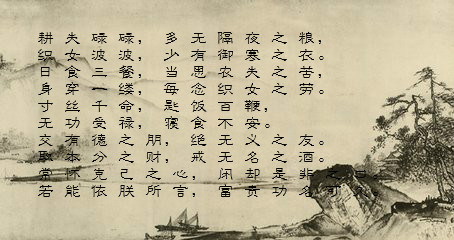 耕夫碌碌，多无隔夜之粮，
织女波波，少有御寒之衣。
日食三餐，当思农夫之苦，
身穿一缕，每念织女之劳。
寸丝千命，匙饭百鞭，
无功受禄，寝食不安。
交有德之朋，绝无义之友。
取本分之财，戒无名之酒。
常怀克己之心，闭却是非之口。
若能依朕所言，富贵功名可